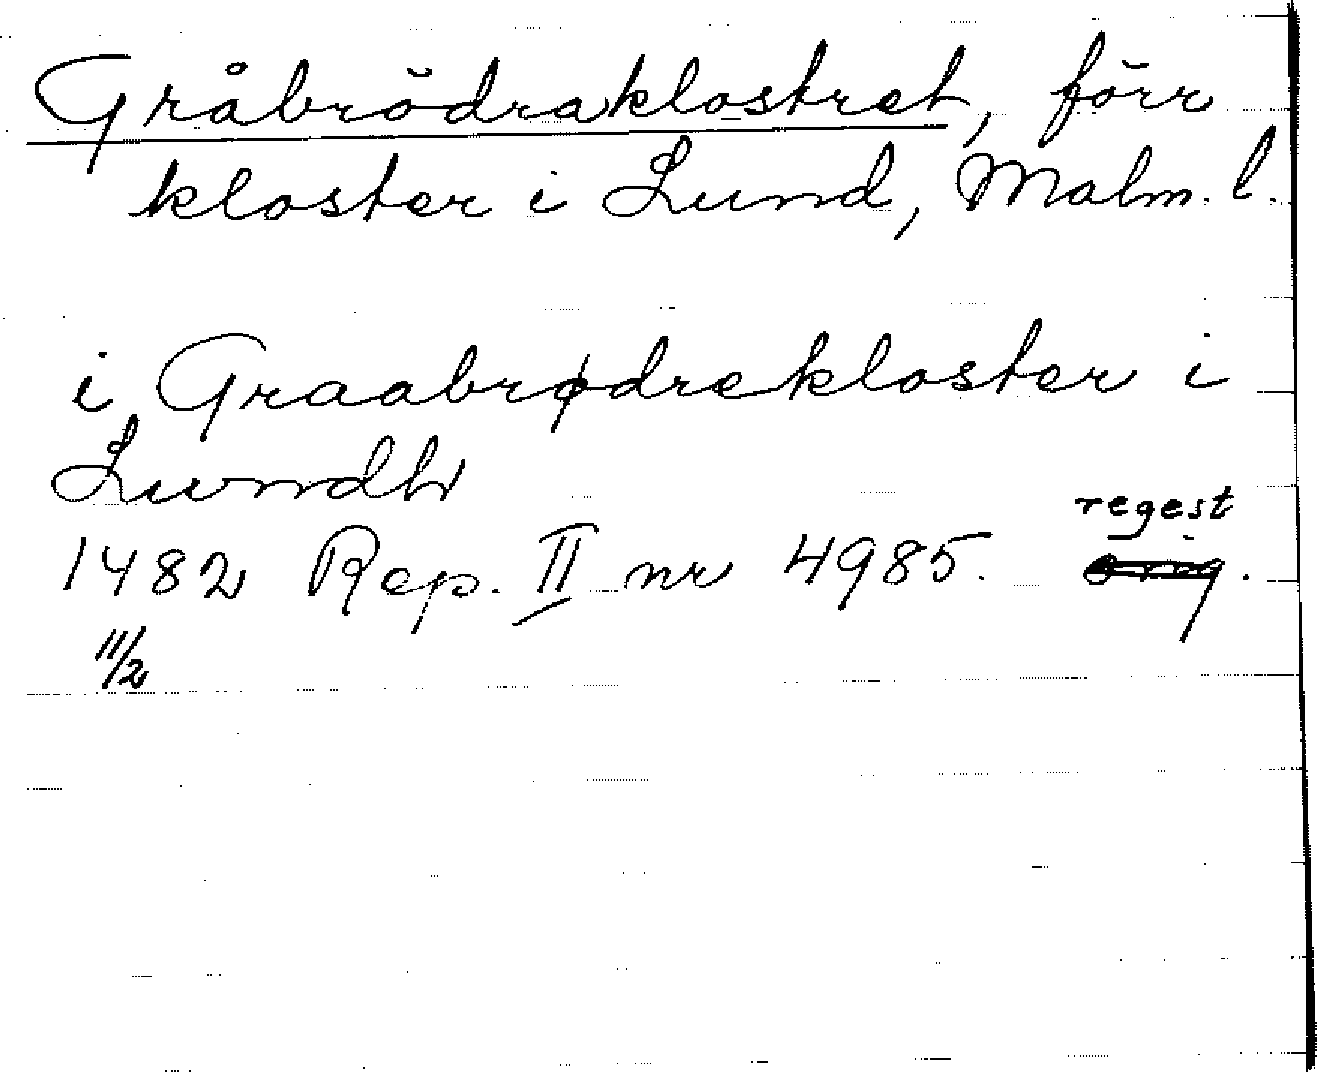 Gråbrödraklostret, förr
kloster i Lund, Malm. l.
i Graabrødrekloster i
Lundh
regest
1482 Rep. II nr 4985. orig.
11/2